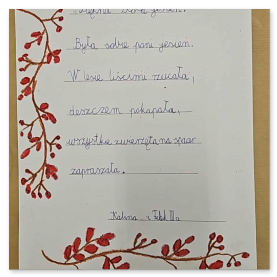 Była sobie pani jesień.
W lesie liśćmi rzucała,
deszczem pokapała.
wszystkie zwierzęta na spacer
zapraszała.
Kalina